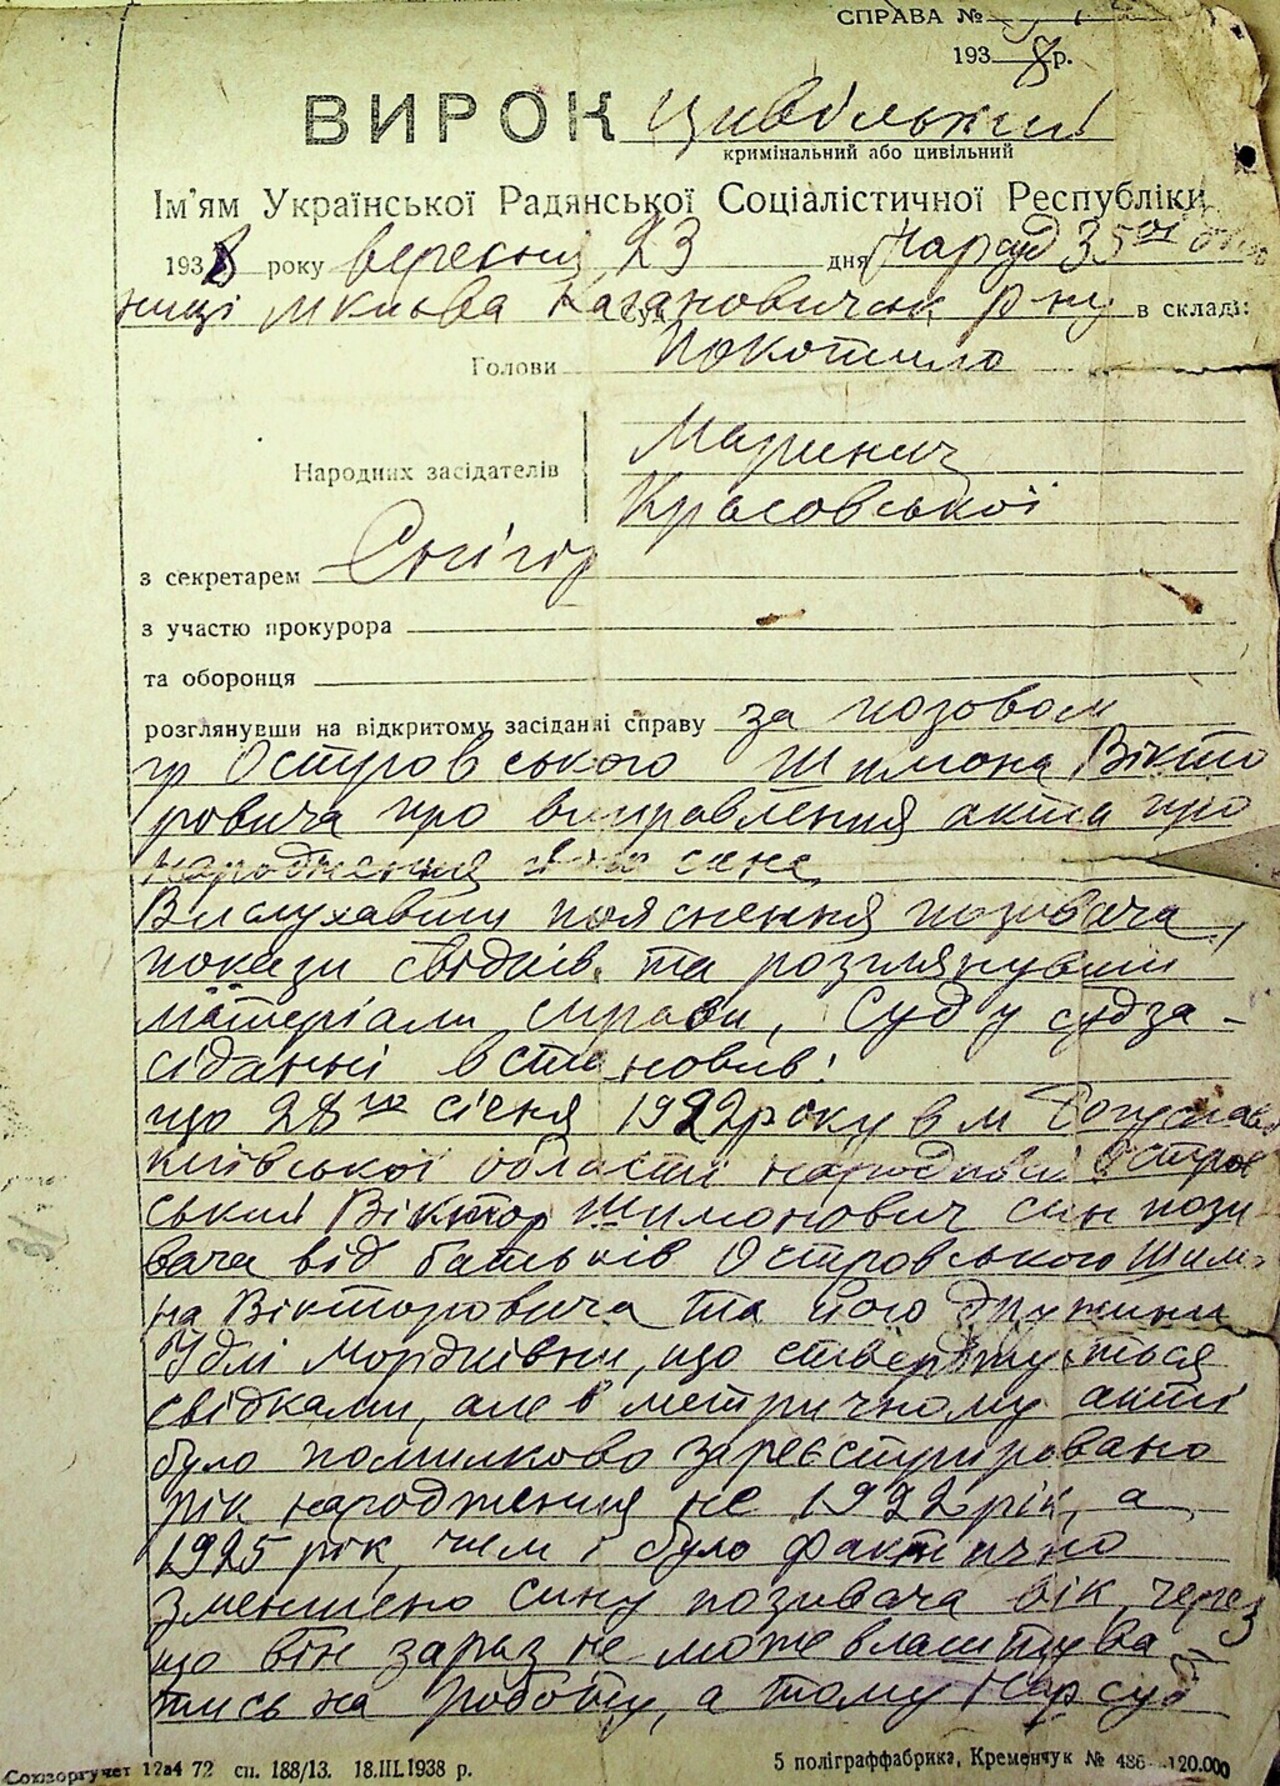 СПРАВА №
193 8 р.
ВИРОК Цивільний
кримінальний або цивільний
Ім'ям Української Радянської Соціалістичної Республіки
1938 року вересня 23 дня Нарсуд 35ої діль
ниці м Києва Кагановичськ р ну в складі:
Суд
Голови Покотило
Маринич
Народних засідателів
Красовської
з секретарем Снігір
з участю прокурора
та оборонця
розглянувши на відкритому засіданні справу за позовом
гр Островського Шимона Вікто
ровича про виправлення акта про
народження сина
Вислухавши пояснення позивача,
покази свідків та розглянувши
матеріали справи, Суд у судза-
сіданні встановив:
що 28го січня 1922 року в м Богуславі
Київської області народився Остров
ський Віктор Шимонович син пози
вача від батьків Островського Шимо
на Вікторовича та його дружини
Мордківни, що стверджується
свідками, але в метричному акті
було помилково зареєстрировано
рік народження не 1922 рік, а
1925 рік, чим і було фактично
зменшено сину позивача вік, через
що він зараз не може влаштува-
тись на роботу, а тому Нарсуд
Союзоргучет 12а4 72 сп. 188/13. 18.III.1938 р.
5 поліграффабрика, Кременчук № 486 120.000